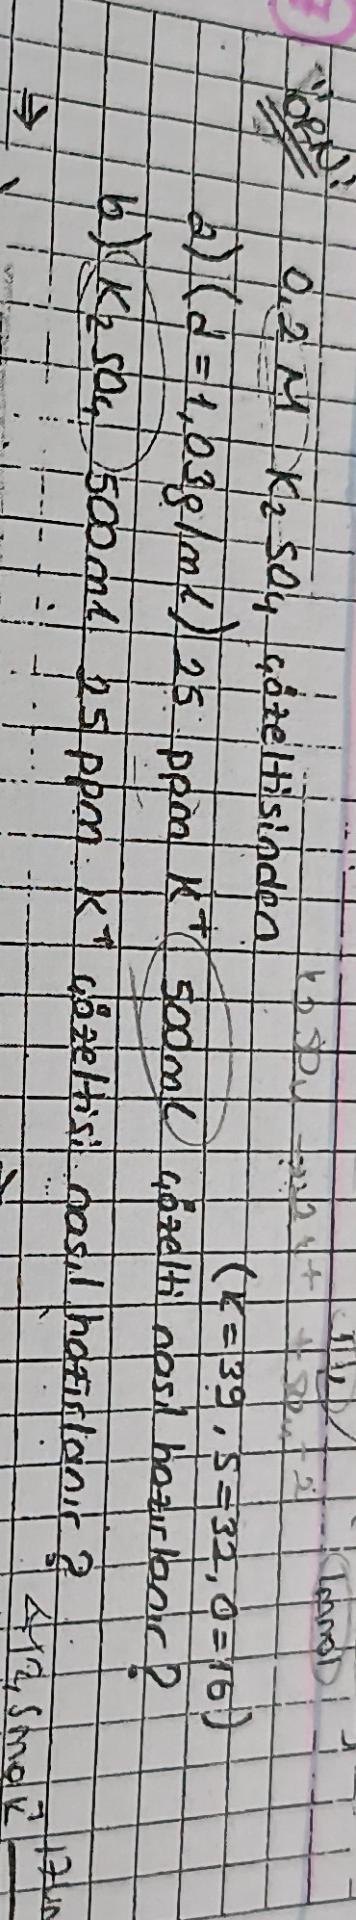 "ÖRN:
0,2 M K₂SO₄ çözeltisinden
(K=39, S=32, O=16)
a) (d=1,03g/mL) 25 ppm K⁺ 500mL çözelti nasıl hazırlanır?
b) K₂SO₄ 500mL 25 ppm K⁺ çözeltisi nasıl hazırlanır?
⇒